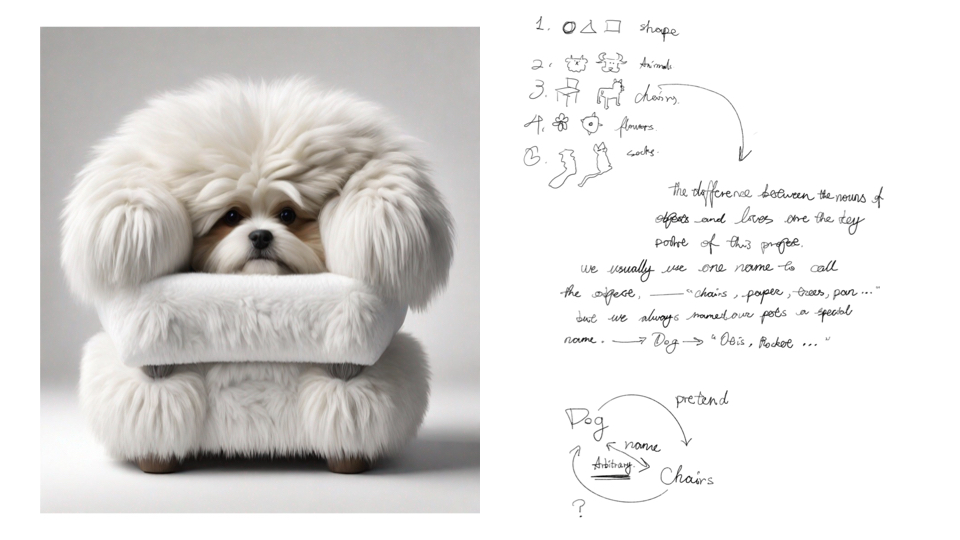 1. shape
2. Animals
3. chairs.
4. flowers.
5. socks.
the difference between the nouns of
objects and lives are the key
point of this project.
we usually use one name to call
the object, — "chairs, paper, trees, pan..."
but we always named our pets a special
name. → Dog → "Obis, Rocket ..."
Dog
pretend
name
Arbitrary
Chairs
?